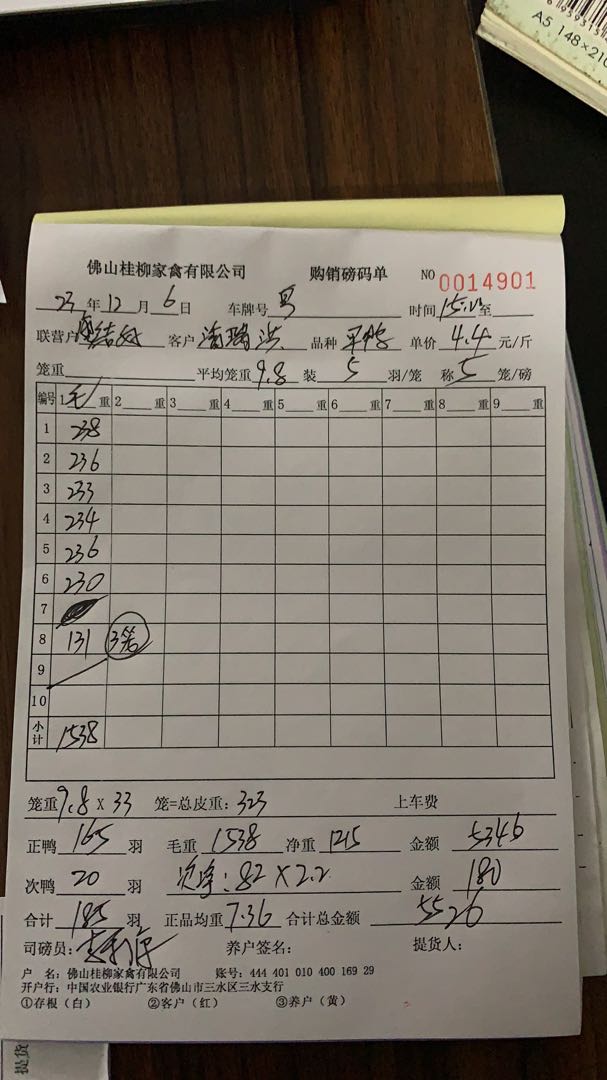 A5 148×210
佛山桂柳家禽有限公司 购销磅码单 NO 0014901
23年12月6日 车牌号 时间15: 至
联营户 客户 潘瑞洪 品种 单价 4.4 元/斤
笼重 平均笼重 9.8 装 5 羽/笼 称 5 笼/磅
编号 1 毛 重 2 重 3 重 4 重 5 重 6 重 7 重 8 重 9 重
1 238
2 236
3 233
4 234
5 236
6 230
7
8 131 3笼
9
10
小计 1538
笼重 9.8 X 33 笼=总皮重: 323 上车费
正鸭 165 羽 毛重 1538 净重 1215 金额 5346
次鸭 20 羽 次净: 82 X 2.2 金额 180
合计 185 羽 正品均重 7.36 合计总金额 5526
司磅员: 养户签名: 提货人:
户 名: 佛山桂柳家禽有限公司 账号: 444 401 010 400 169 29
开户行: 中国农业银行广东省佛山市三水区三水支行
①存根（白） ②客户（红） ③养户（黄）
提货